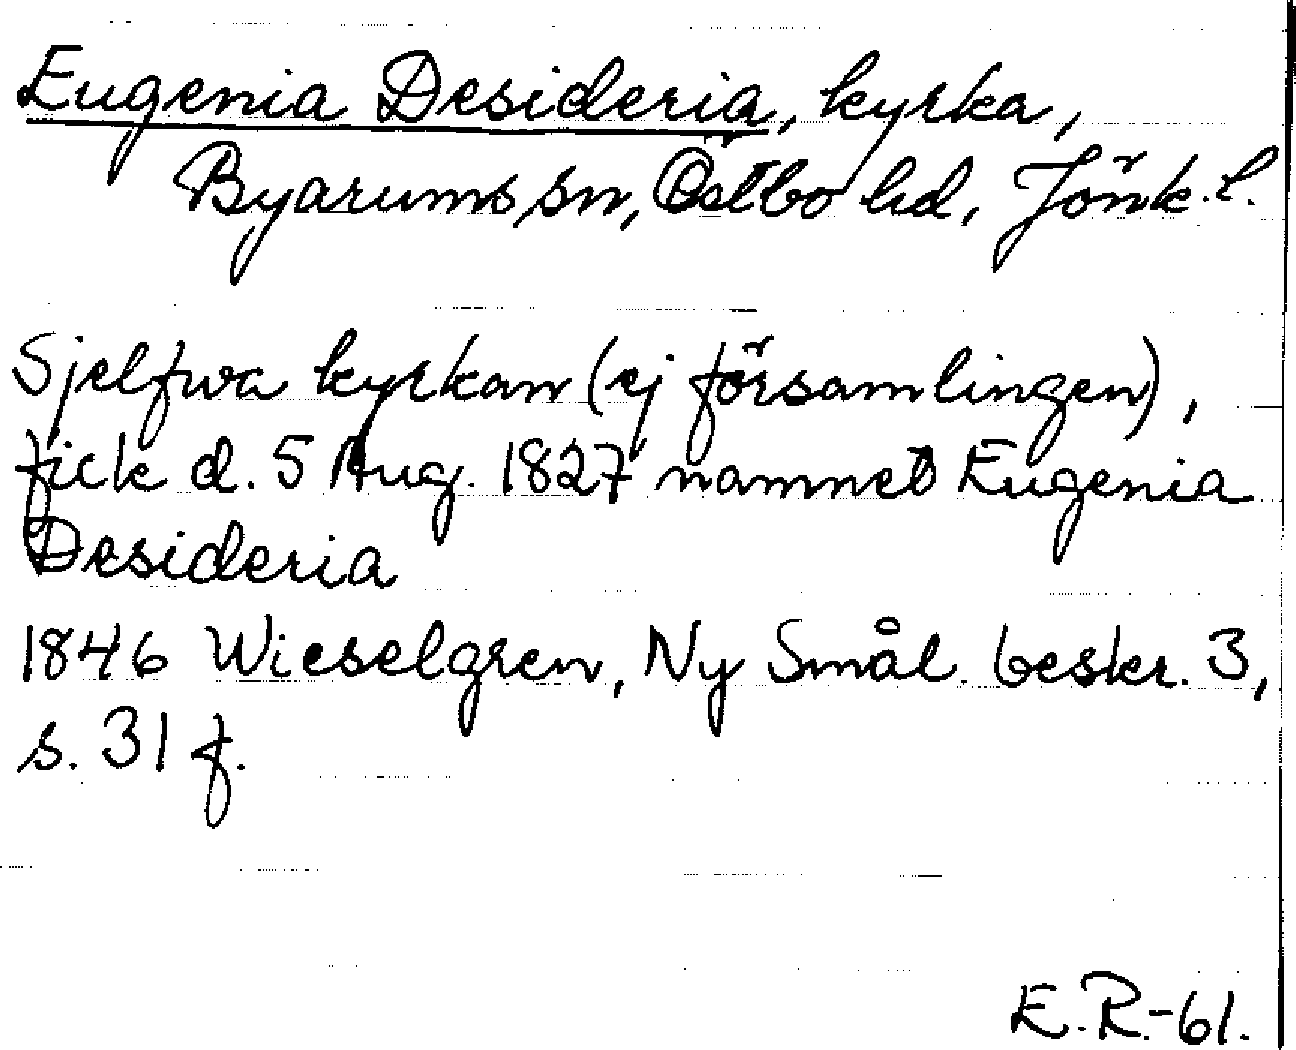 Eugenia Desideria, kyrka,
Byarums sn, Östbo hd, Jönk. l.
Sjelfwa kyrkan (ej församlingen),
fick d. 5 Aug. 1827 namnet Eugenia
Desideria
1846 Wieselgren, Ny Smål. beskr. 3,
s. 31 f.
E.R.-61.